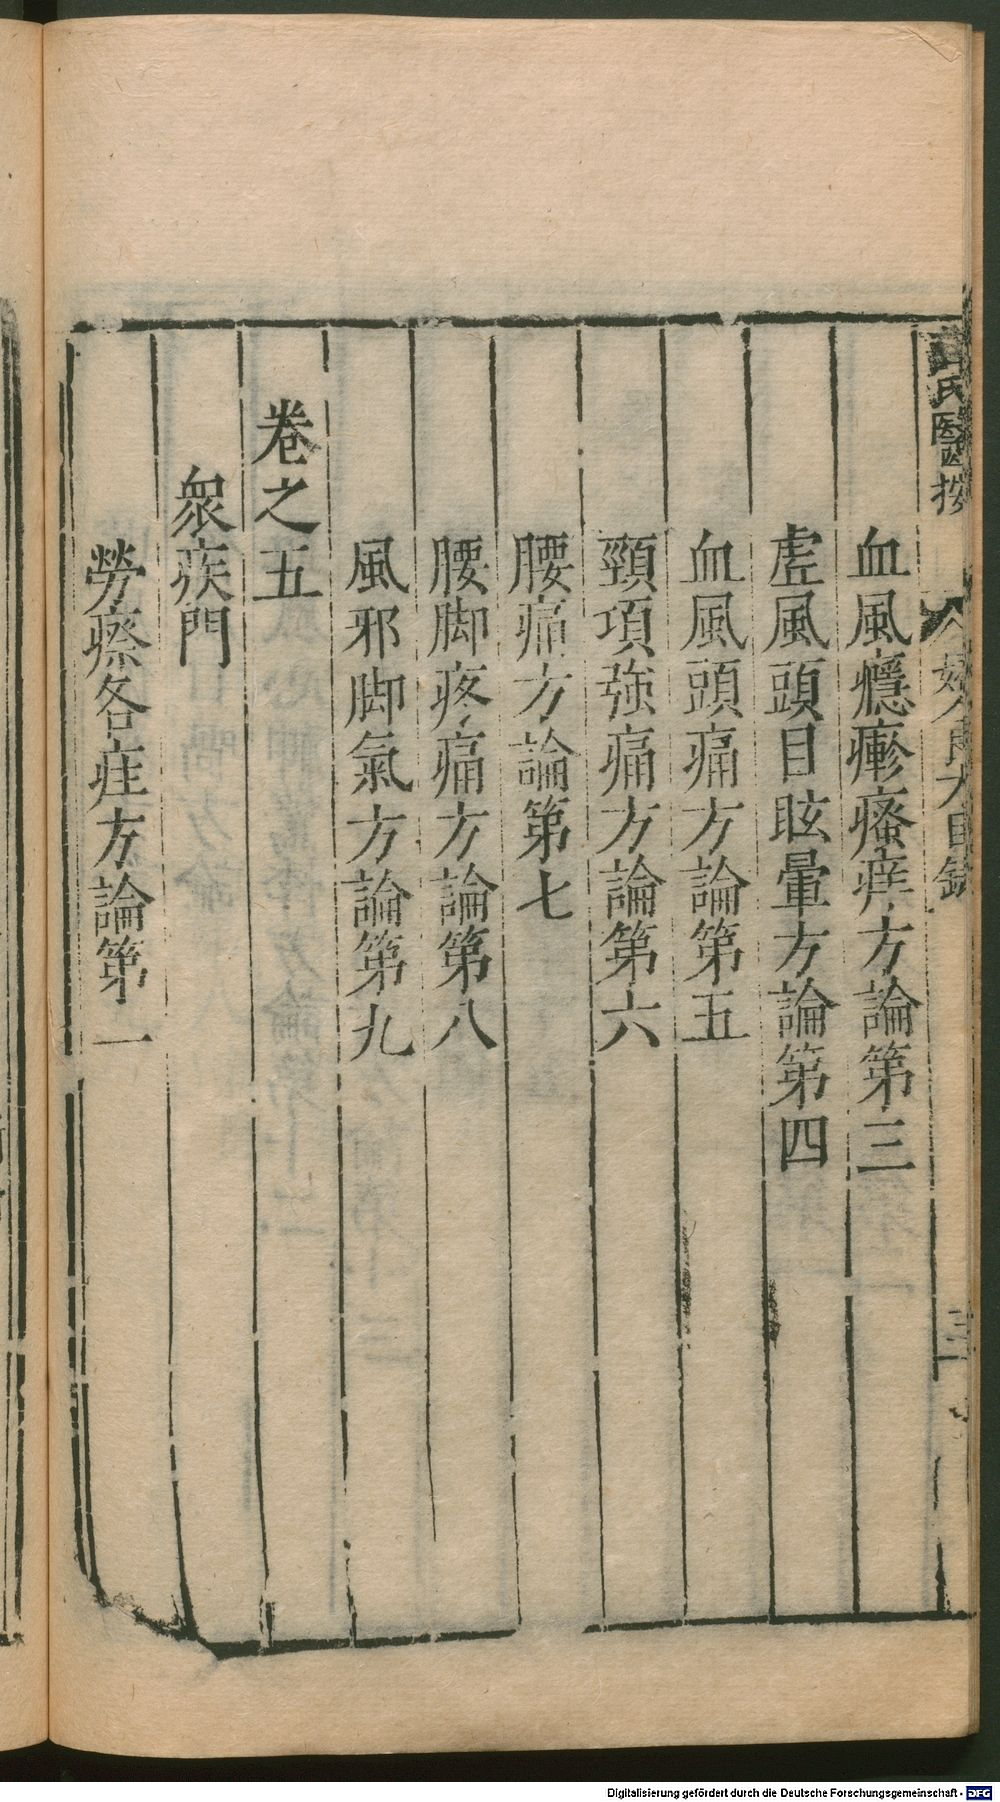 氏醫按
血風癮𤺋瘙痒方論第三
虗風頭目眩暈方論第四
血風頭痛方論第五
頸項強痛方論第六
腰痛方論第七
腰脚疼痛方論第八
風邪脚氣方論第九
卷之五
衆疾門
勞瘵各疰方論第一
Digitalisierung gefördert durch die Deutsche Forschungsgemeinschaft - DFG